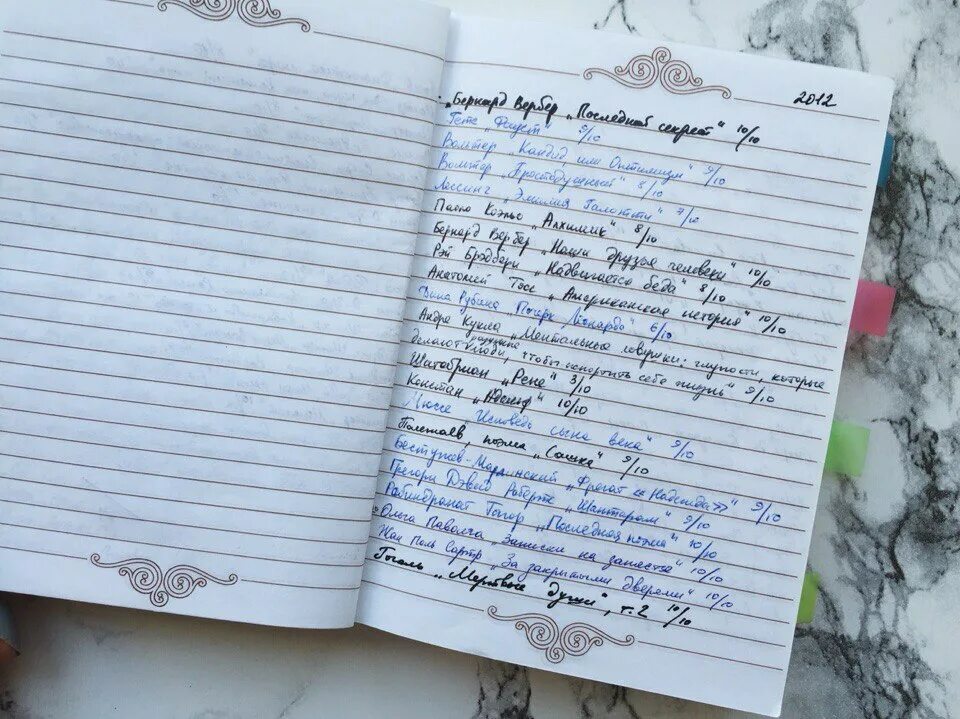 2012
Бернард Вербер „Последний секрет“ 10/10
Гете „Фауст“ 9/10
Вольтер „Кандид или Оптимизм“ 9/10
Вольтер „Простодушный“ 8/10
Лессинг „Эмилия Галотти“ 7/10
Пауло Коэльо „Алхимик“ 8/10
Бернард Вербер „Наши друзья человеки“ 10/10
Рэй Брэдбери „Надвигается беда“ 8/10
Анатолий Тосс „Американская история“ 10/10
Дина Рубина „Почерк Леонардо“ 6/10
Андре Кукла „Ментальные ловушки: глупости, которые
делают разумные люди, чтобы испортить себе жизнь“ 9/10
Шатобриан „Рене“ 3/10
Констан „Адольф“ 10/10
Мюссе „Исповедь сына века“ 9/10
Полежаев, поэма „Сашка“ 9/10
Бестужев-Марлинский „Фрегат «Надежда»“ 9/10
Грегори Дэвид Робертс „Шантарам“ 9/10
Рабиндранат Тагор „Последняя поэма“ 10/10
Ольга Паволга „Записки на запястье“ 10/10
Жан Поль Сартр „За закрытыми дверями“ 10/10
Гоголь „Мертвые души“, т. 2 10/10